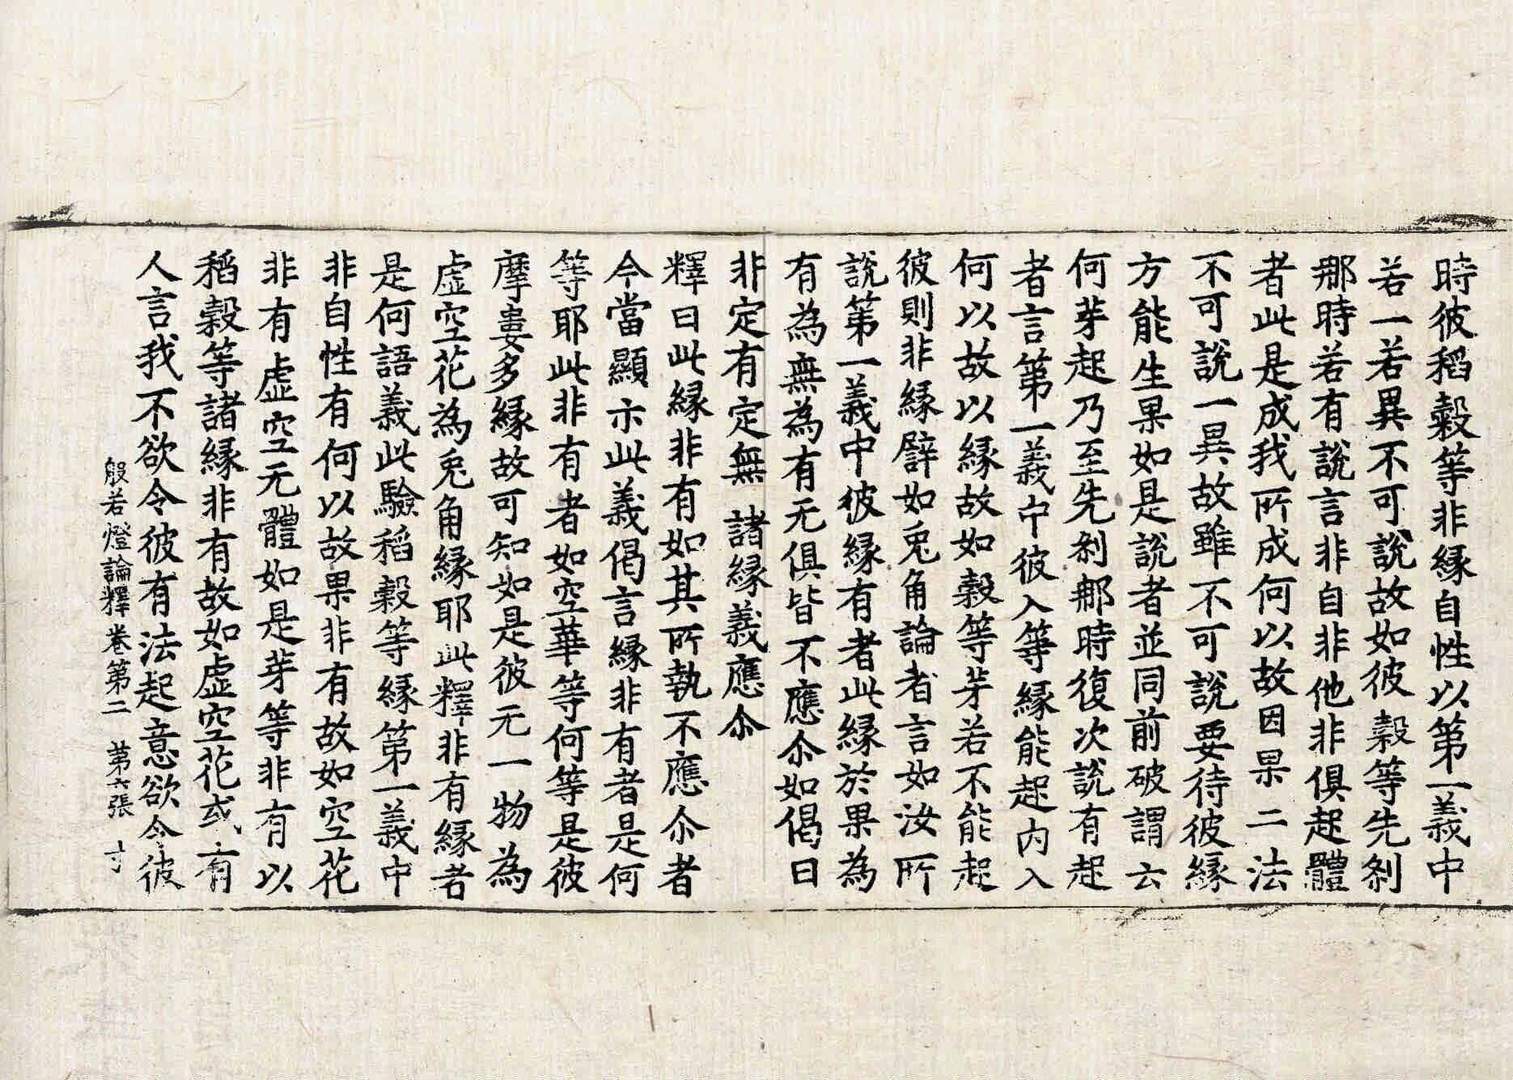 時彼稻穀等非縁自性以第一義中
若一若異不可說故如彼穀等先剎
那時若有說言非自非他非俱起體
者此是成我所成何以故因果二法
不可說一異故雖不可說要待彼縁
方能生果如是說者並同前破謂云
何芽起乃至先剎那時復次說有起
者言第一義中彼入等縁能起內入
何以故以縁故如穀等芽若不能起
彼則非縁辟如兎角論者言如汝所
說第一義中彼縁有者此縁於果為
有為無為有无俱皆不應尒如偈曰
非定有定無 諸縁義應尒
釋曰此縁非有如其所執不應尒者
今當顯示此義偈言縁非有者是何
等耶此非有者如空華等何等是彼
摩婁多縁故可知如是彼无一物為
虛空花為兎角縁耶此釋非有縁者
是何語義此驗稻穀等縁第一義中
非自性有何以故果非有故如空花
非有虛空无體如是芽等非有以
稻穀等諸縁非有故如虛空花或有
人言我不欲令彼有法起意欲令彼
般若燈論釋卷第二 第六張 寸